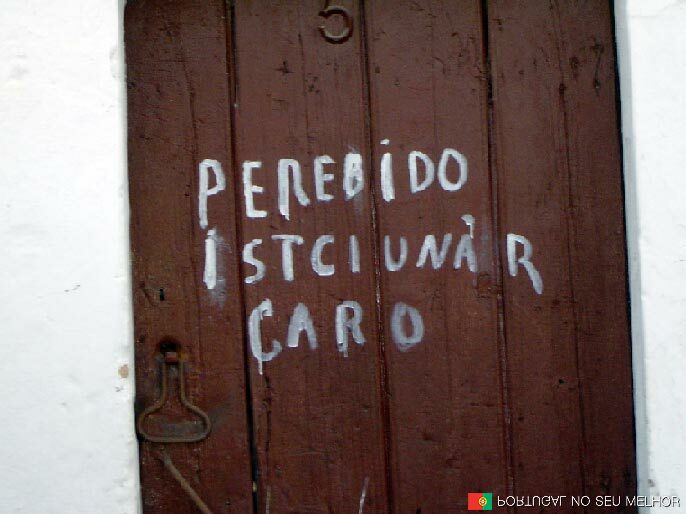 5
PEREBIDO
ISTCIUNÀR
CARO
PORTUGAL NO SEU MELHOR